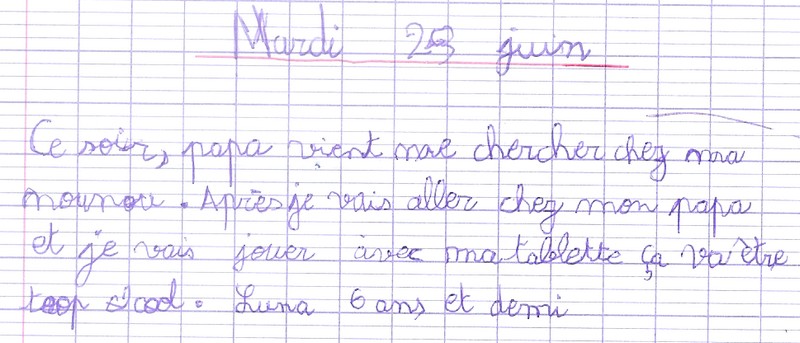 Mardi 23 juin
Ce soir, papa vient me chercher chez ma
nounou. Après je vais aller chez mon papa
et je vais jouer avec ma tablette ça va être
trop cool. Luna 6 ans et demi